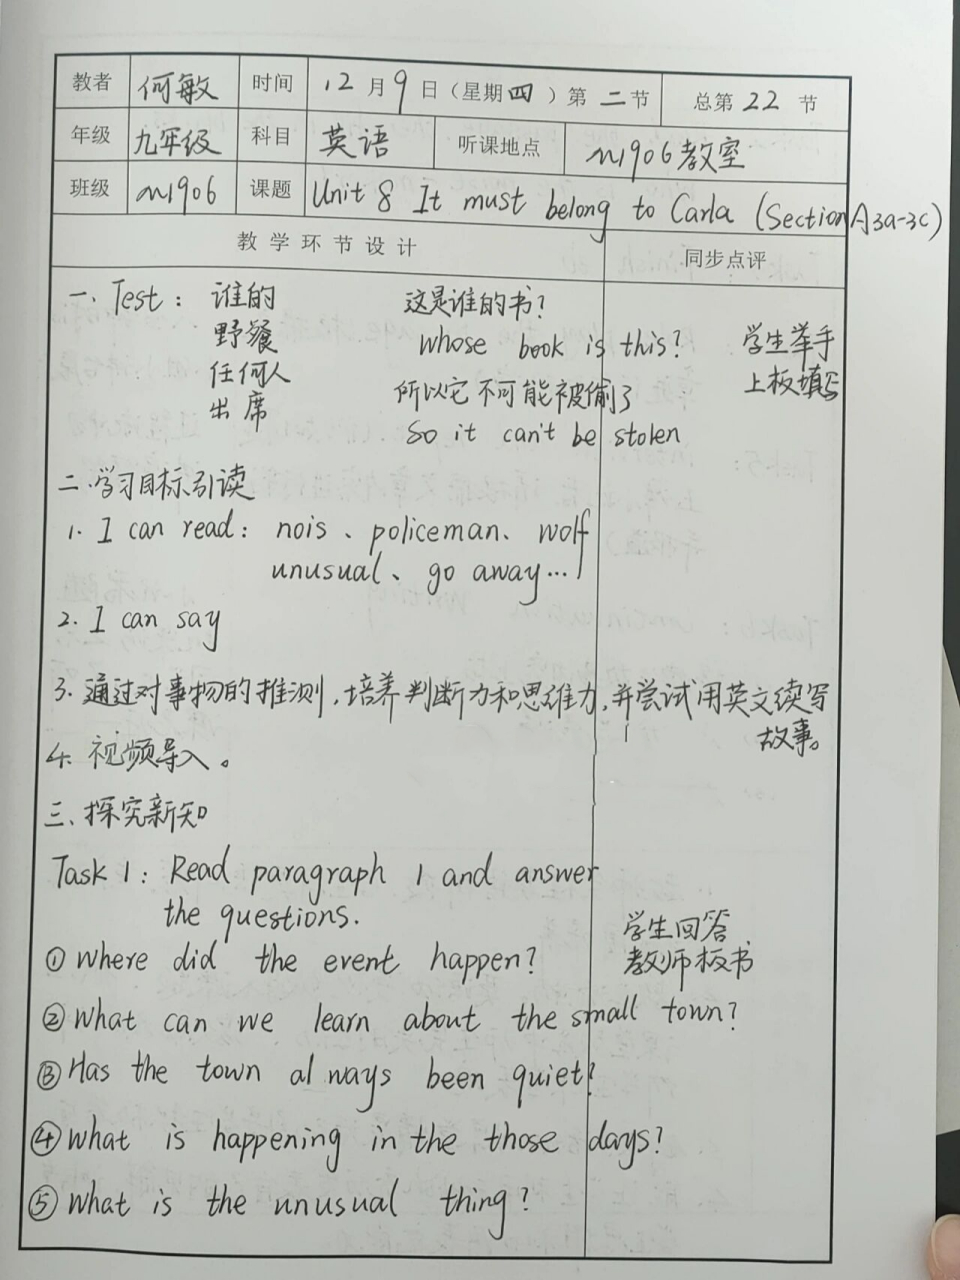 教者 何敏 时间 12月9日(星期四)第二节 总第22节
年级 九年级 科目 英语 听课地点 m1906教室
班级 m1906 课题 Unit 8 It must belong to Carla (Section A 3a-3c)
教学环节设计 同步点评
一. Test: 谁的 这是谁的书?
野餐 whose book is this? 学生举手
任何人 所以它不可能被偷了 上板填写
出席 So it can't be stolen
二.学习目标引读
1. I can read: nois、policeman、wolf
unusual、go away...
2. I can say
3. 通过对事物的推测,培养判断力和思维力,并尝试用英文续写
故事。
4. 视频导入。
三、探究新知
Task 1: Read paragraph 1 and answer
the questions.
学生回答
① where did the event happen? 教师板书
② what can we learn about the small town?
③ Has the town always been quiet?
④ what is happening in the those days?
⑤ what is the unusual thing?